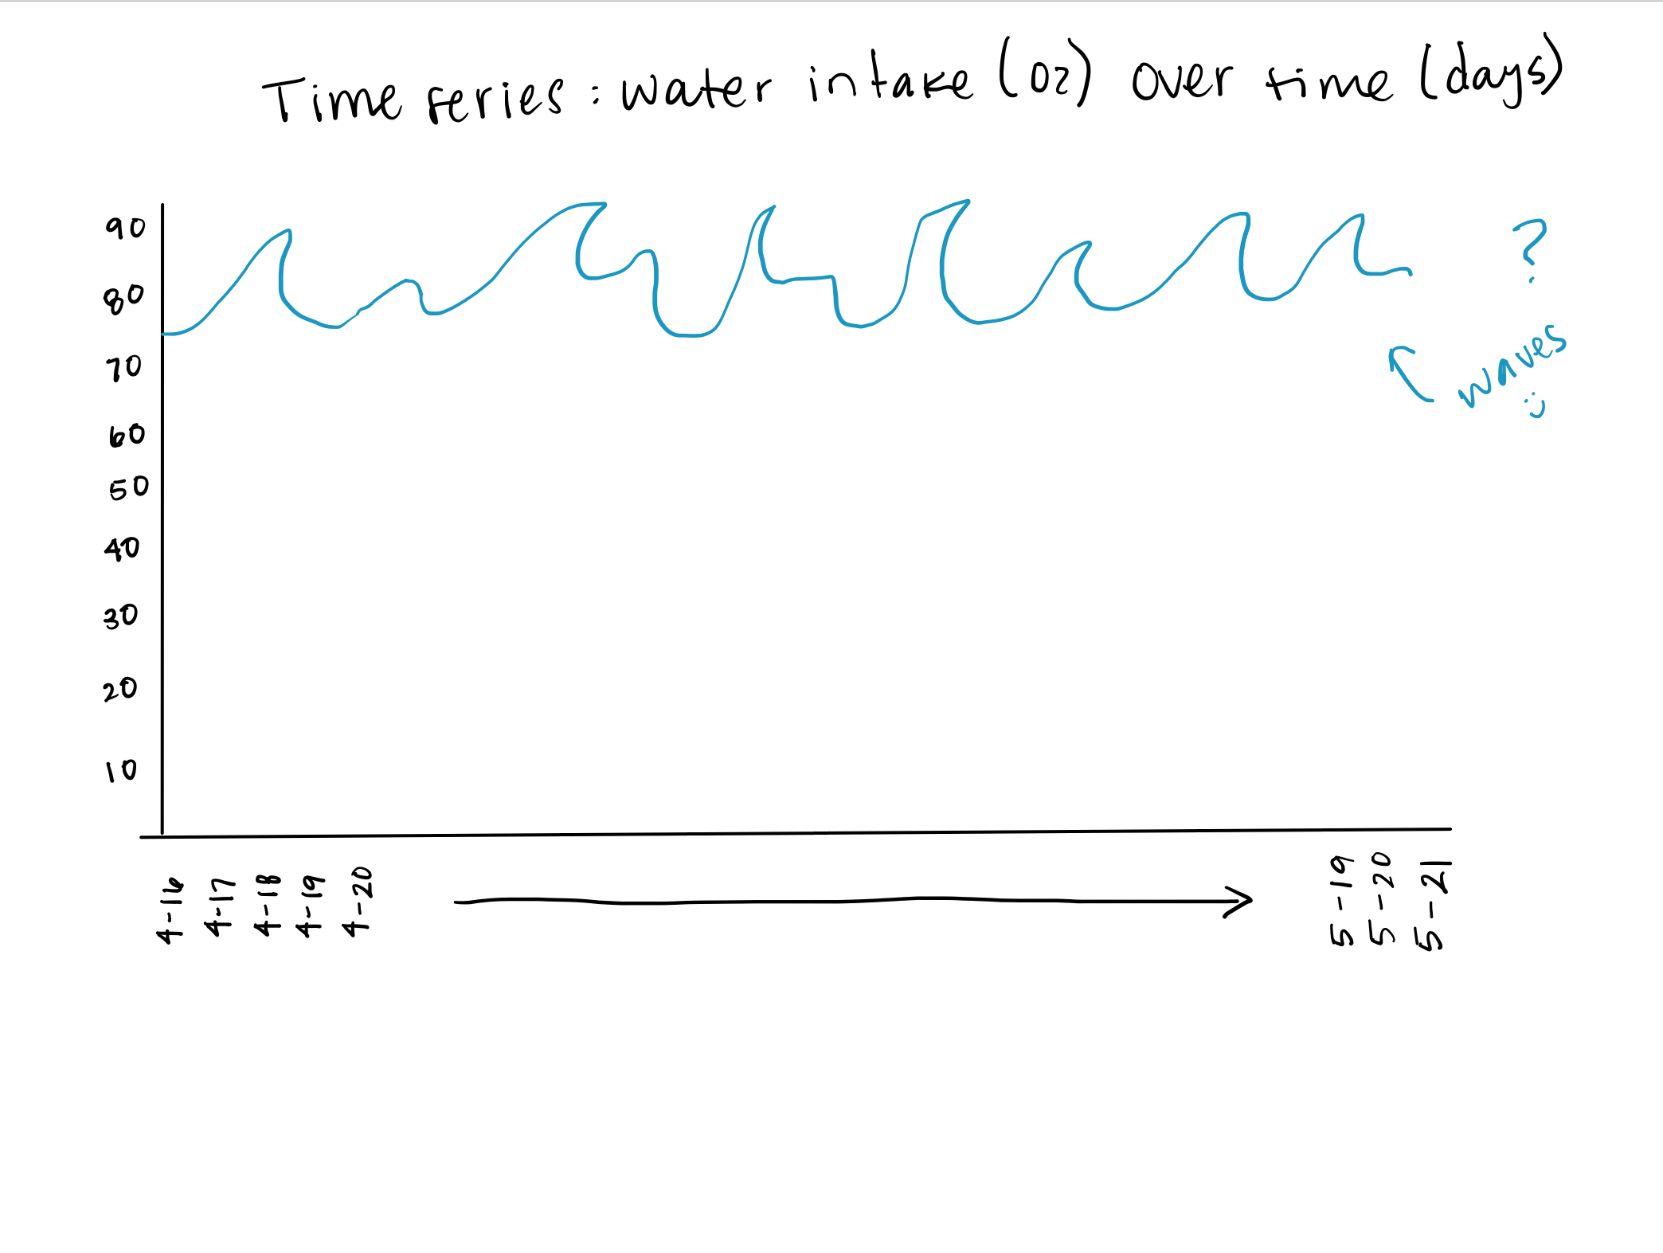 Time series: water intake (oz) over time (days)
90
80
70
60
50
40
30
20
10
?
waves
4-16
4-17
4-18
4-19
4-20
5-19
5-20
5-21